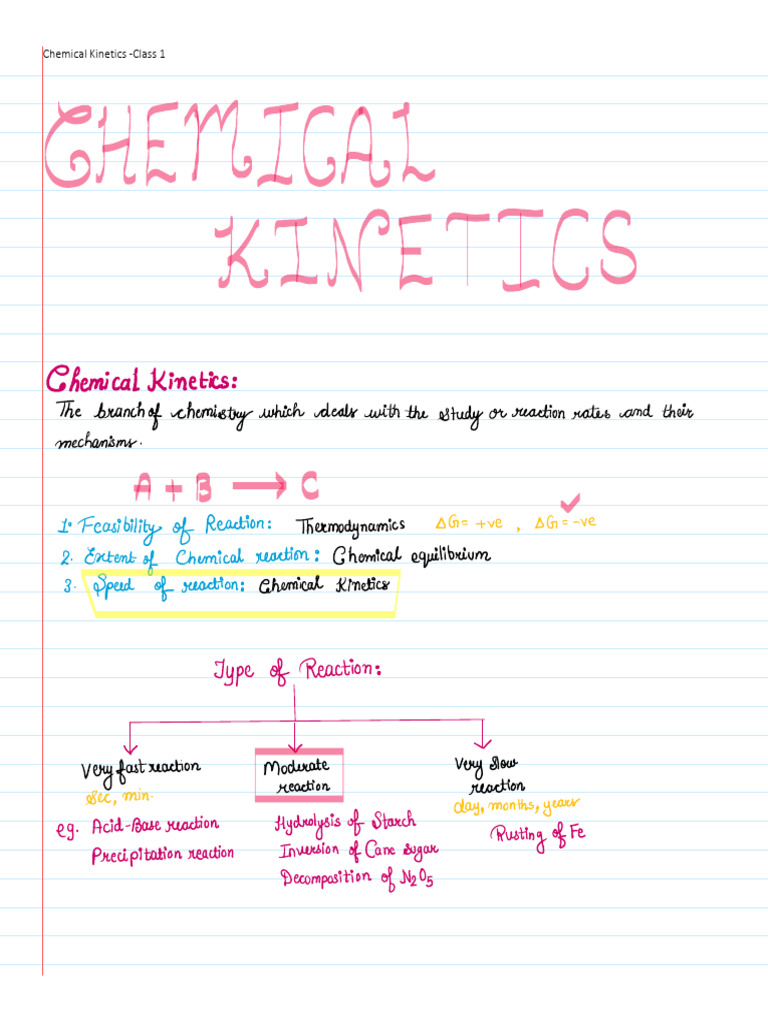 Chemical Kinetics -Class 1
CHEMICAL
KINETICS
Chemical Kinetics:
The branch of chemistry which deals with the study or reaction rates and their
mechanisms.
A + B ⟶ C
1. Feasibility of Reaction: Thermodynamics ΔG = +ve , ΔG = -ve ✓
2. Extent of Chemical reaction: Chemical equilibrium
3. Speed of reaction: Chemical Kinetics
Type of Reaction:
Very fast reaction
sec, min.
Moderate
reaction
Very slow
reaction
day, months, years
eg. Acid-Base reaction
Precipitation reaction
Hydrolysis of Starch
Inversion of Cane sugar
Decomposition of N₂O₅
Rusting of Fe